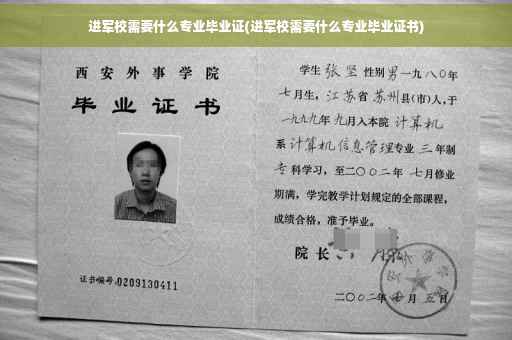 进军校需要什么专业毕业证(进军校需要什么专业毕业证书)
西安外事学院
毕业证书
证书编号:0209130411
学生 张坚 性别 男 一九八〇年
七月生,江苏省 苏州县(市)人,于
一九九九年 九月入本院 计算机
系 计算机信息管理专业 三 年制
专科学习,至二〇〇二年 七月修业
期满,学完教学计划规定的全部课程,
成绩合格,准予毕业。
院长
二〇〇二年 月 五日